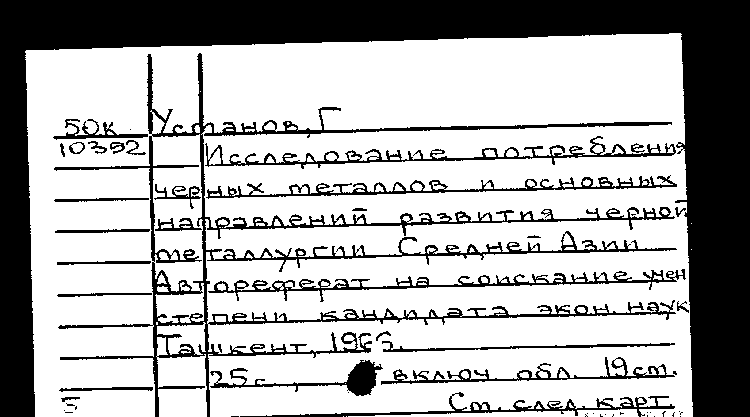 50к Установ, Г
10392 Исследование потребления
черных металлов и основных
направлений развития черной
металлургии Средней Азии
Автореферат на соискание учен
степени кандидата экон. наук
Ташкент, 1966.
25с , включ обл. 19см.
5 См. след. карт.